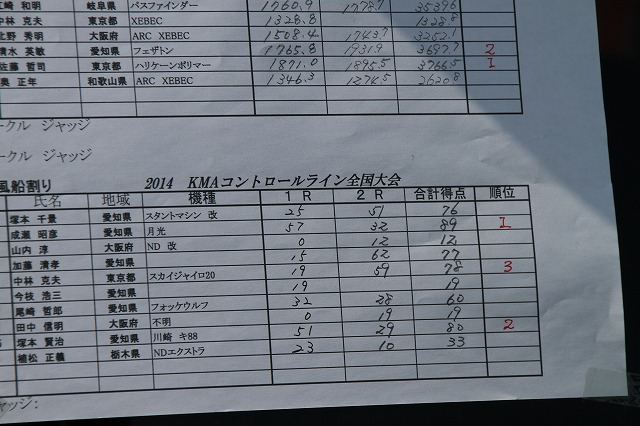 江崎 和明 岐阜県 パスファインダー 1760.9 1778.7 3539.6
中林 克夫 東京都 XEBEC 1328.8 1328.8
北野 秀明 大阪府 ARC XEBEC 1508.4 1743.7 3252.1
清水 英敏 愛知県 フェザトン 1765.8 1931.9 3697.7 2
佐藤 哲司 東京都 ハリケーンポリマー 1871.0 1895.5 3766.5 1
奥 正年 和歌山県 ARC XEBEC 1346.3 1274.5 2620.8
ークル ジャッジ
ークル ジャッジ
風船割り 2014 KMAコントロールライン全国大会
氏名 地域 機種 1 R 2 R 合計得点 順位
塚本 千景 愛知県 スタントマシン 改 25 51 76
成瀬 昭彦 愛知県 月光 57 32 89 1
山内 淳 大阪府 ND 改 0 12 12
加藤 清孝 愛知県 15 62 77
中林 克夫 東京都 スカイジャイロ20 19 59 78 3
今枝 浩三 愛知県 19 19
尾崎 哲郎 愛知県 フォッケウルフ 32 28 60
田中 信明 大阪府 不明 0 19 19
塚本 賢治 愛知県 川崎 キ88 51 29 80 2
植松 正義 栃木県 NDエクストラ 23 10 33
ャッジ: